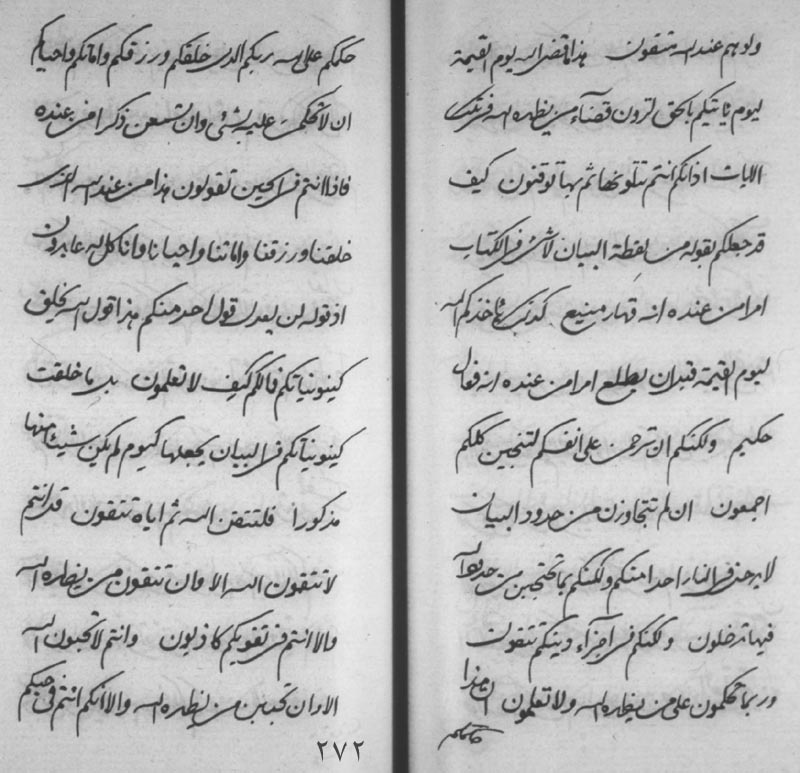 ولو هم عند الله متقون هذا ما قضى الله يوم القيمة
ليوم ياتيكم بالحق لترون قضاء من يظهره الله في تلك
الايات اذ انكم انتم تتلونها ثم بها توقنون كيف
قد جعلكم بقوله من نقطة البيان لا شئ في الكتاب
امرا من عنده انه قهار منيع كذلك ياخذكم الله
ليوم القيمة قبل ان يطلع امرا من عنده انه فعال
حكيم ولكنكم ان ترحمن على انفسكم لتنجين كلكم
اجمعون ان لم تتجاوزن من حدود البيان
لا يدخل في النار احدا منكم ولكنكم بما تحتجبن من حدود الله
فيها تدخلون ولكنكم في اجزاء دينكم تتقون
وربما تحكمون على من يظهره الله ولا تعلمون ان هذا
حكمكم
حكمكم على الله ربكم الذي خلقكم ورزقكم واماتكم واحياكم
ان لا تحكمن عليه بشئ وان تتبعن ذكرا من عنده
فاذا انتم في الحين تقولون هذا من عند الله الذي
خلقنا ورزقنا واماتنا واحيانا وانا كل له عابدون
اذ قوله لن يعدله قول احد منكم هذا قول الله يخلق
كينونياتكم فما لكم كيف لا تعلمون بل ما خلقت
كينونياتكم في البيان يجعلها كيوم لم يكن شيئا منها
مذكورا فلتتقن الله ثم اياه تتقون قد انتم
لا تتقون الله الا وان تتقون من يظهره الله
والا انتم في تقويكم كاذبون وانتم لا تحبون الله
الا وان تحبن من يظهره الله والا انكم انتم في حبكم
٢٧٢